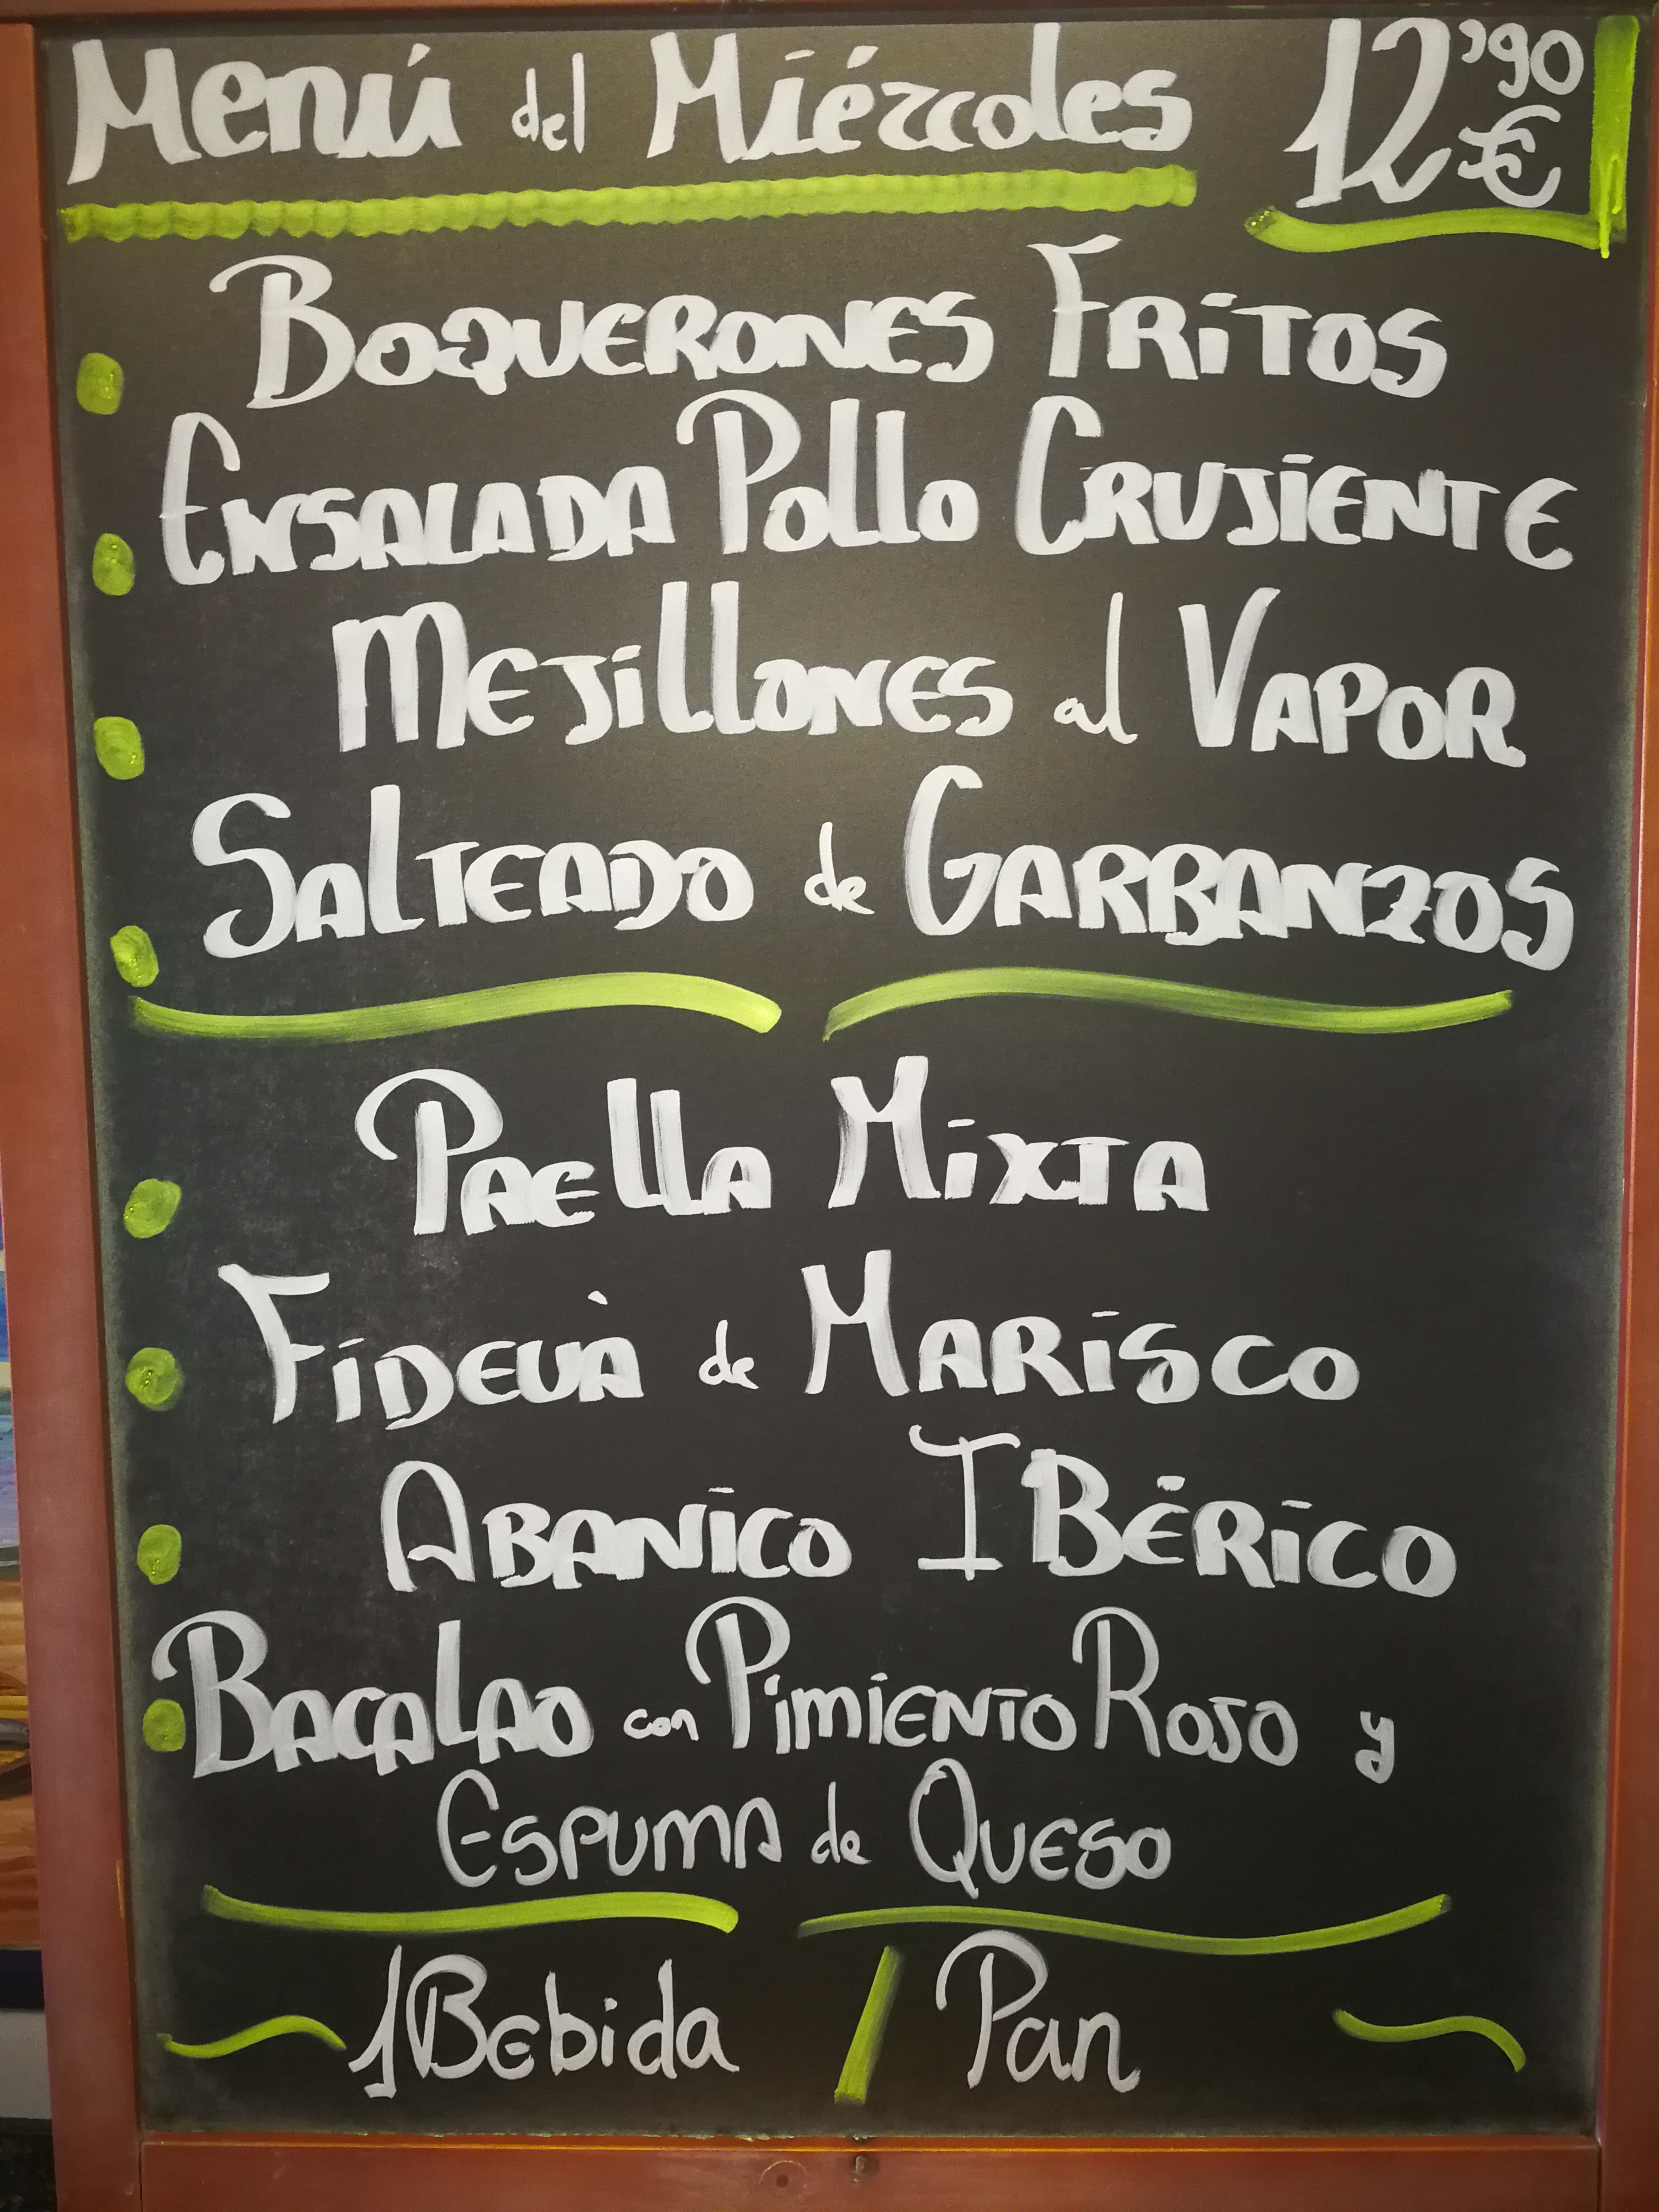 Menú del Miércoles 12'90 €
Boquerones Fritos
Ensalada Pollo Crujiente
Mejillones al Vapor
Salteado de Garbanzos
Paella Mixta
Fideuà de Marisco
Abanico Ibérico
Bacalao con Pimiento Rojo y
Espuma de Queso
1 Bebida / Pan